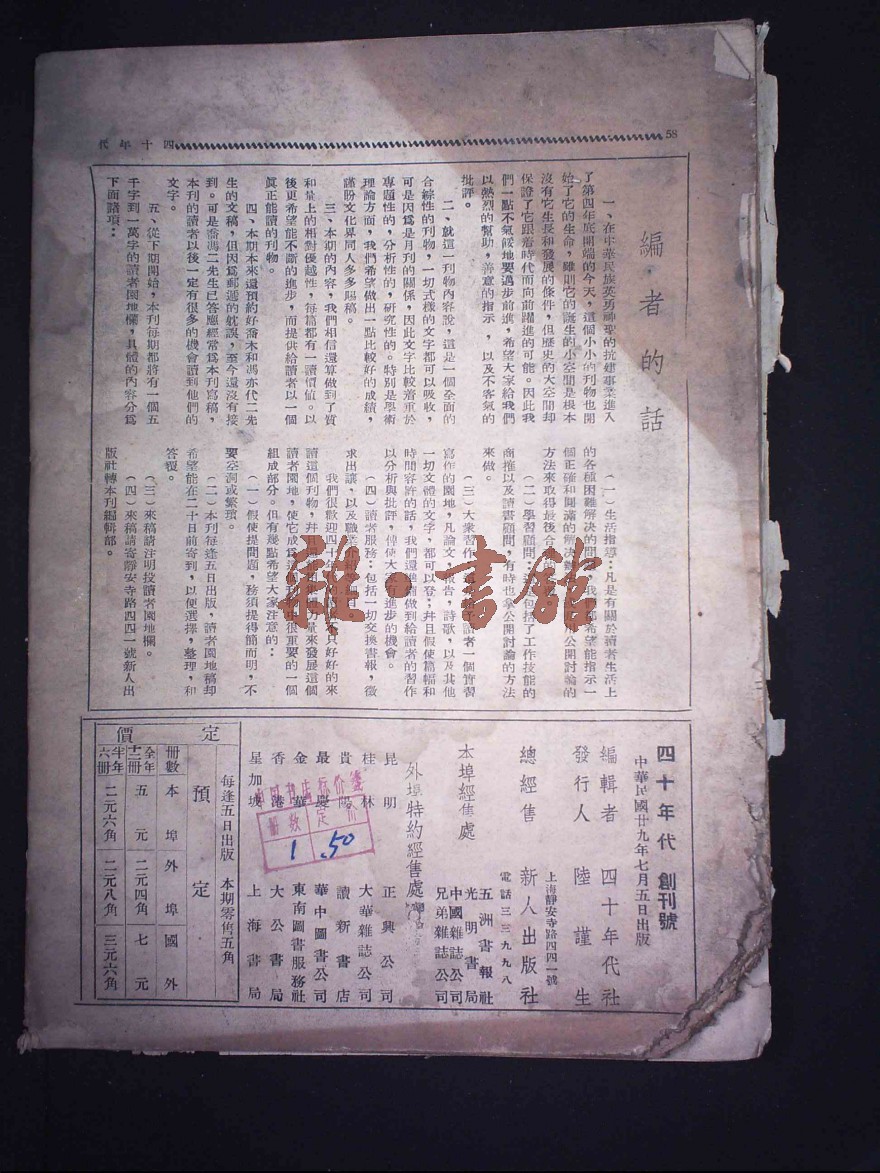 58
四十年代
編者的話
一、在中華民族英勇神聖的抗建事業進入
了第四年底開端的今天，這個小小的刊物也開
始了它的生命，雖則它的誕生的小空間是根本
沒有它生長和發展的條件，但歷史的大空間却
保證了它跟着時代而向前躍進的可能。因此我
們一點不氣餒地要邁步前進，希望大家給我們
以熱烈的幫助，善意的指示，以及不客氣的
批評。
二、就這一刊物內容說，這是一個全面的
合綜性的刊物，一切式樣的文字都可以吸收，
可是因爲是月刊的關係，因此文字比較着重於
專題性的，分析性的，研究性的。特別是學術
理論方面，我們希望做出一點比較好的成績，
謹盼文化界同人多多賜稿。
三、本期的內容，我們相信還算做到了質
和量上的相對優越性，每篇都有一讀價值。以
後更希望能不斷的進步，而提供給讀者以一個
眞正能讀的刊物。
四、本期本來還預約好喬木和馮亦代二先
生的文稿，但因爲郵遞的躭誤，至今還沒有接
到。可是喬馮二先生已答應經常爲本刊寫稿，
本刊的讀者以後一定有很多的機會讀到他們的
文字。
五、從下期開始，本刊每期都將有一個五
千字到一萬字的讀者園地欄，具體的內容分爲
下面諸項：
（一）生活指導：凡是有關於讀者生活上
的各種困難解決的問題，我們都希望能指示一
個正確和圓滿的解決辦
公開討論的
方法來取得最後合
（二）學習顧問：
包括了工作技能的
商推以及讀書顧問，有時也拿公開討論的方法
來做。
（三）大衆習作
讀者一個實習
寫作的園地，凡論文
報告，詩歌，以及其他
一切文體的文字，都可以登；幷且假使篇幅和
時間容許的話，我們還進
做到給讀者的習作
以分析與批評，俾使大
有進步的機會。
（四）讀者服務：包括一切交換書報，徵
求出讓，以及職業介紹
我們很歡迎四十年
只好好的來
讀這個刊物，幷且
力量來發展這個
讀者園地，使它成爲這
中很重要的一個
組成部分。但有幾點希望大家注意的：
（一）假使提問題，務須提得簡而明，不
要空洞或繁瑣。
（二）本刊每逢五日出版，讀者園地稿却
希望能在二十日前寄到，以便選擇，整理，和
答覆。
（三）來稿請注明投讀者園地欄。
（四）來稿請寄靜安寺路四四一號新人出
版社轉本刊編輯部。
雜·書館
四十年代 創刊號
中華民國廿九年七月五日出版
編輯者 四十年代社
發行人 陸謹生
上海靜安寺路四四一號
總經售 新人出版社
電話三三九九八
本埠經售處
五洲書報社
光明書局
中國雜誌公司
兄弟雜誌公司
外埠特約經售處
昆明 正興公司
桂林 大華雜誌公司
貴陽 讀新書店
華中圖書公司
金華 東南圖書服務社
香港 大公書局
星加坡 上海書局
册数 定价
1 .50
每逢五日出版 本期零售五角
定價
預定
冊數 本埠 外埠 國外
全年十二冊 五元 二元四角 七元
半年六冊 二元六角 二元八角 三元六角